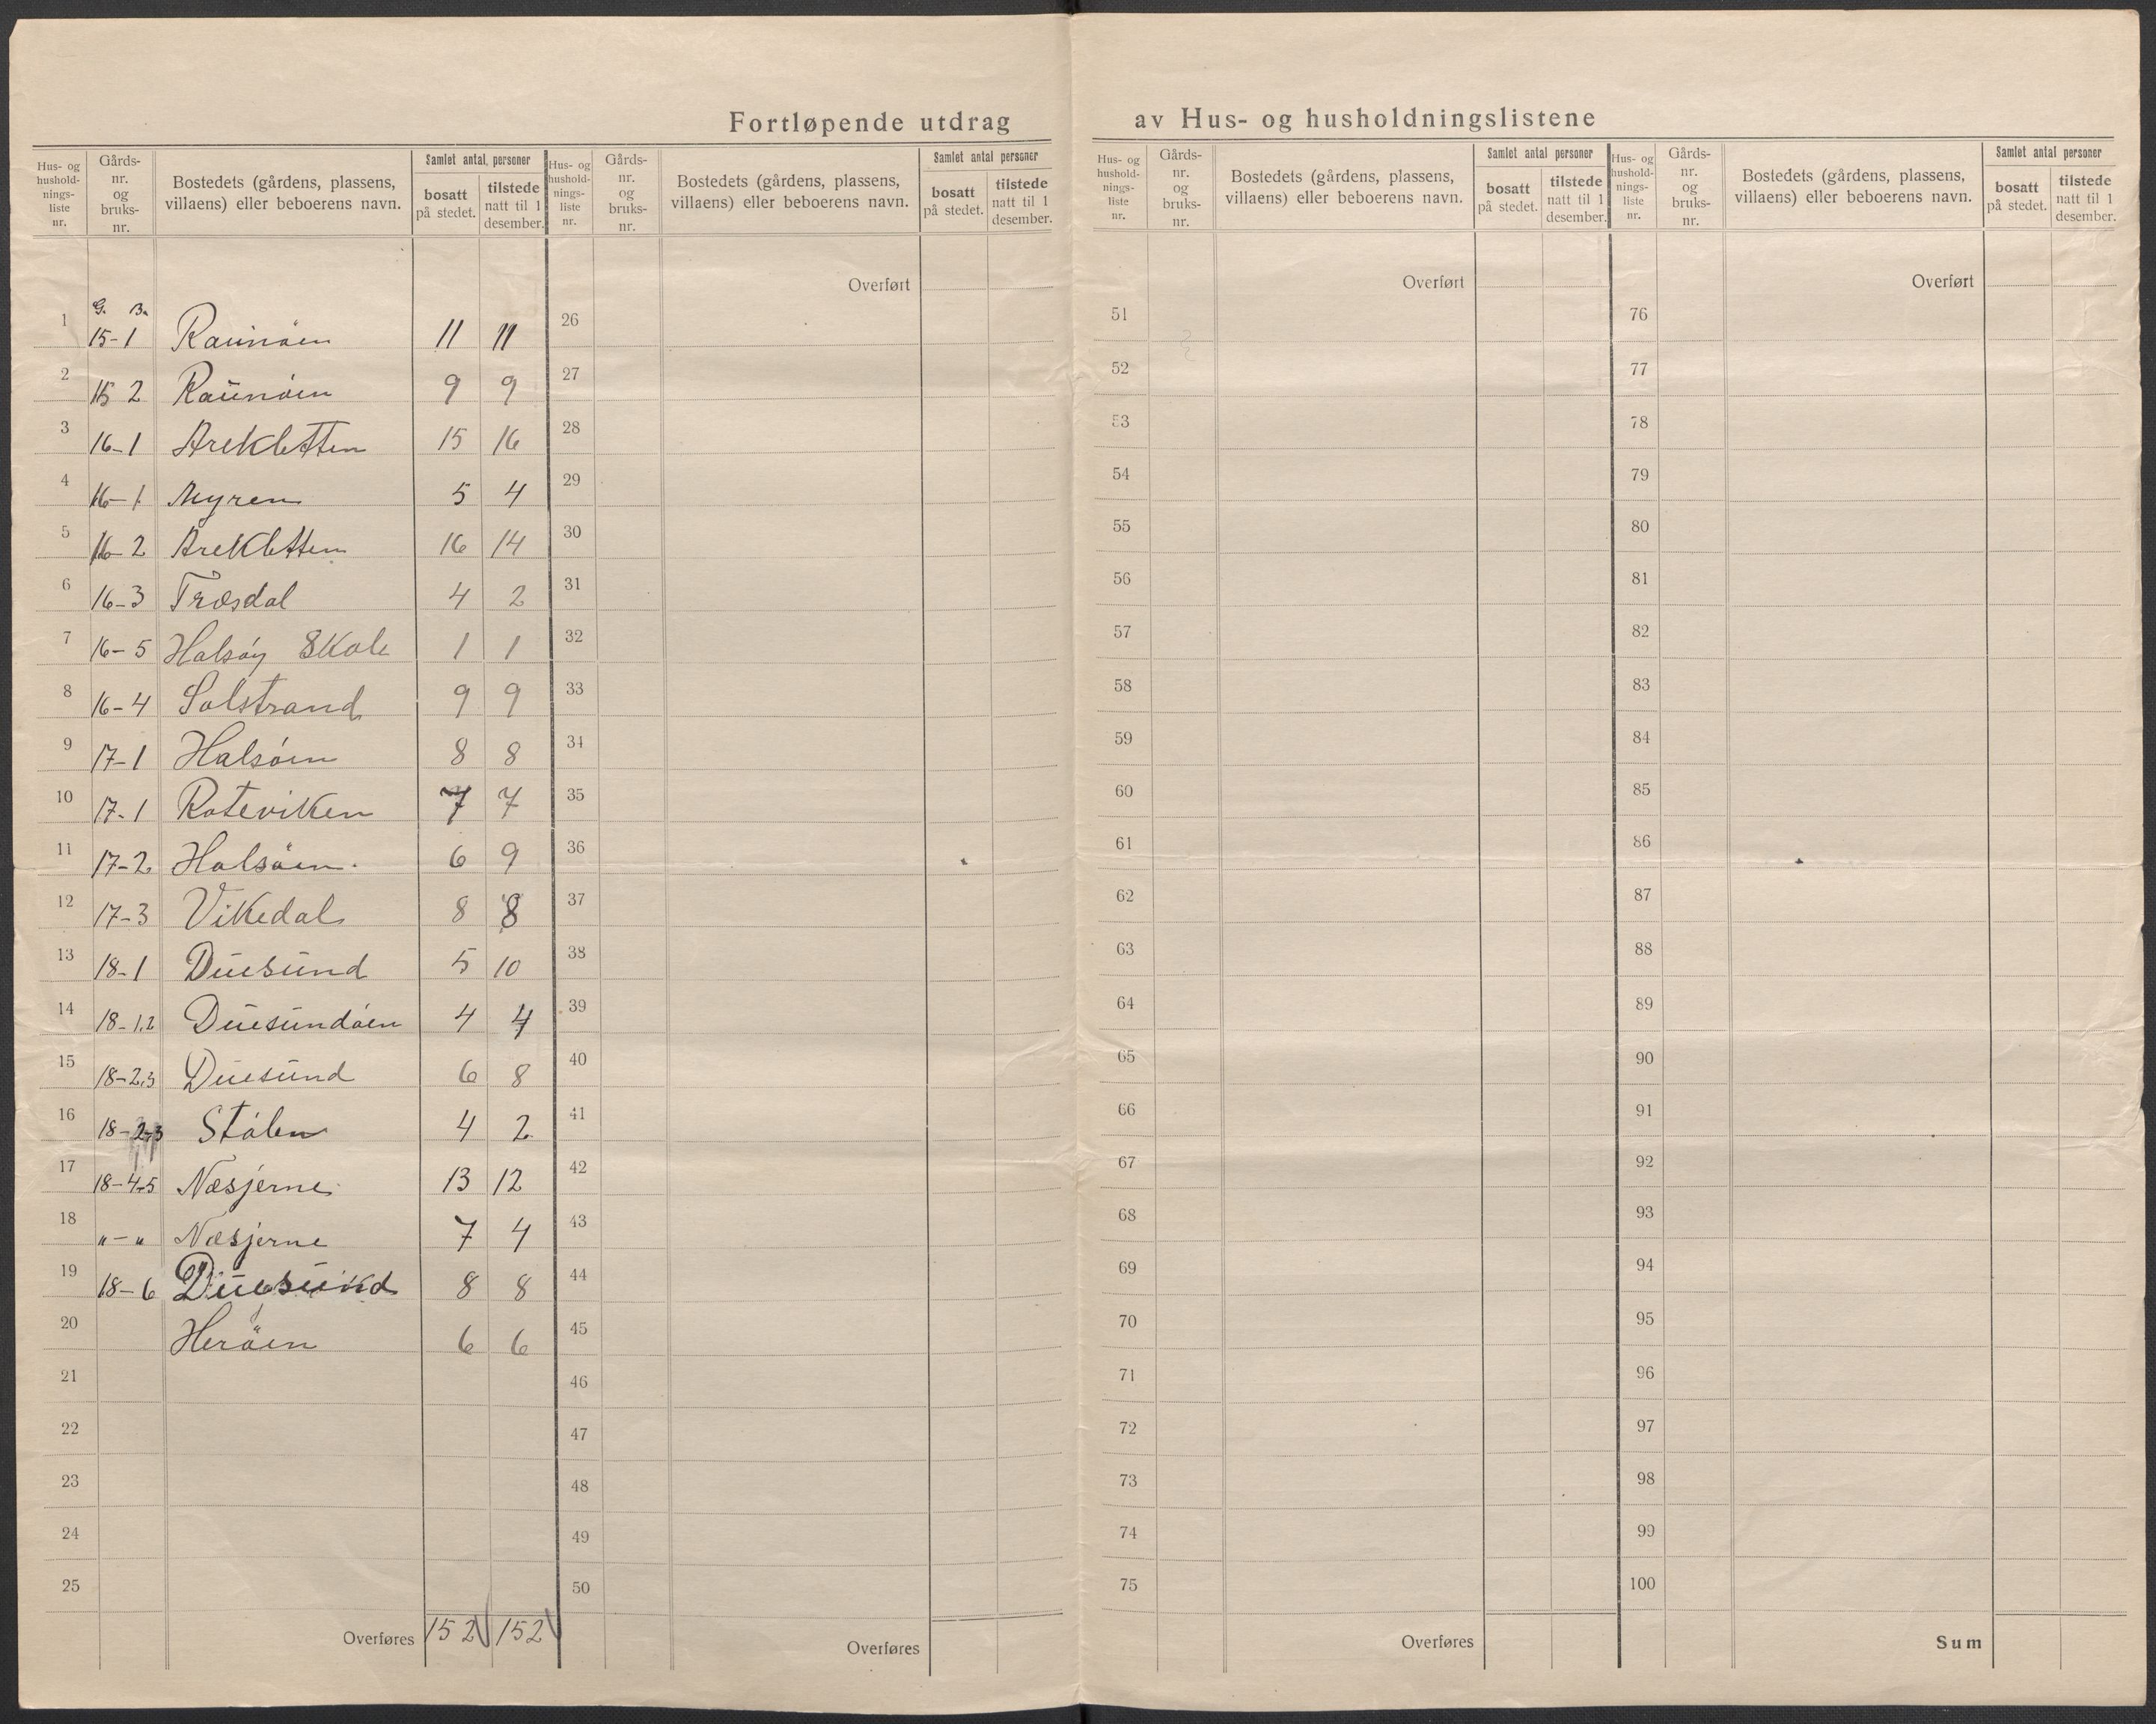 Fortløpende utdrag av Hus- og husholdningslistene
Hus- og hushold-nings-liste nr. | Gårds-nr. og bruks-nr. | Bostedets (gårdens, plassens, villaens) eller beboerens navn. | Samlet antal personer | bosatt på stedet. | tilstede natt til 1 desember.
Hus- og hushold-nings-liste nr. | Gårds-nr. og bruks-nr. | Bostedets (gårdens, plassens, villaens) eller beboerens navn. | Samlet antal personer | bosatt på stedet. | tilstede natt til 1 desember.
Hus- og hushold-nings-liste nr. | Gårds-nr. og bruks-nr. | Bostedets (gårdens, plassens, villaens) eller beboerens navn. | Samlet antal personer | bosatt på stedet. | tilstede natt til 1 desember.
Hus- og hushold-nings-liste nr. | Gårds-nr. og bruks-nr. | Bostedets (gårdens, plassens, villaens) eller beboerens navn. | Samlet antal personer | bosatt på stedet. | tilstede natt til 1 desember.
G. B.
1 15-1 Raunøen 11 11
2 15 2 Raunøen 9 9
3 16-1 Arekletten 15 16
4 16-1 Myren 5 4
5 16-2 Arekletten 16 14
6 16-3 Træsdal 4 2
7 16-5 Halsøy Skole 1 1
8 16-4 Solstrand 9 9
9 17-1 Halsøen 8 8
10 17-1 Roteviken 7 7
11 17-2 Halsøen. 6 9
12 17-3 Vikedal 8 8
13 18-1 Duesund 5 10
14 18-1,2 Duesundøen 4 4
15 18-2,3 Duesund 6 8
16 18-2-3 Stølen 4 2
17 18-4-5 Næsjerne 13 12
18 "-" Næsjerne 7 4
19 18-6 Duesund 8 8
20 Herøen 6 6
21
22
23
24
25
Overføres 152 152
Overført
26
27
28
29
30
31
32
33
34
35
36
37
38
39
40
41
42
43
44
45
46
47
48
49
50
Overføres
Overført
51
52
53
54
55
56
57
58
59
60
61
62
63
64
65
66
67
68
69
70
71
72
73
74
75
Overføres
Overført
76
77
78
79
80
81
82
83
84
85
86
87
88
89
90
91
92
93
94
95
96
97
98
99
100
Sum